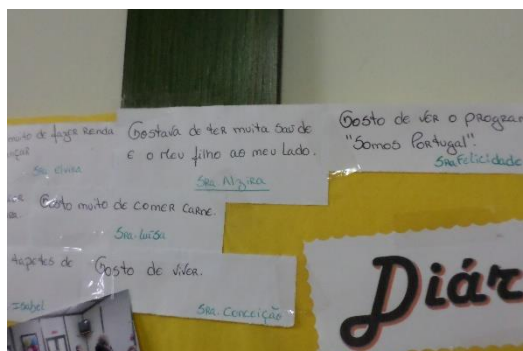 muito de fazer Renda
Sra Elvira
Gostava de ter muita saúde
E o Meu filho ao meu lado.
Sra. Alzira
Gosto de vêr o program
"Somos Portugal".
Sra Felicidade
Gosto muito de comer carne.
Sra. Luísa
tapetes de
Isabel
Gosto de viver.
Sra. Conceição
Diár